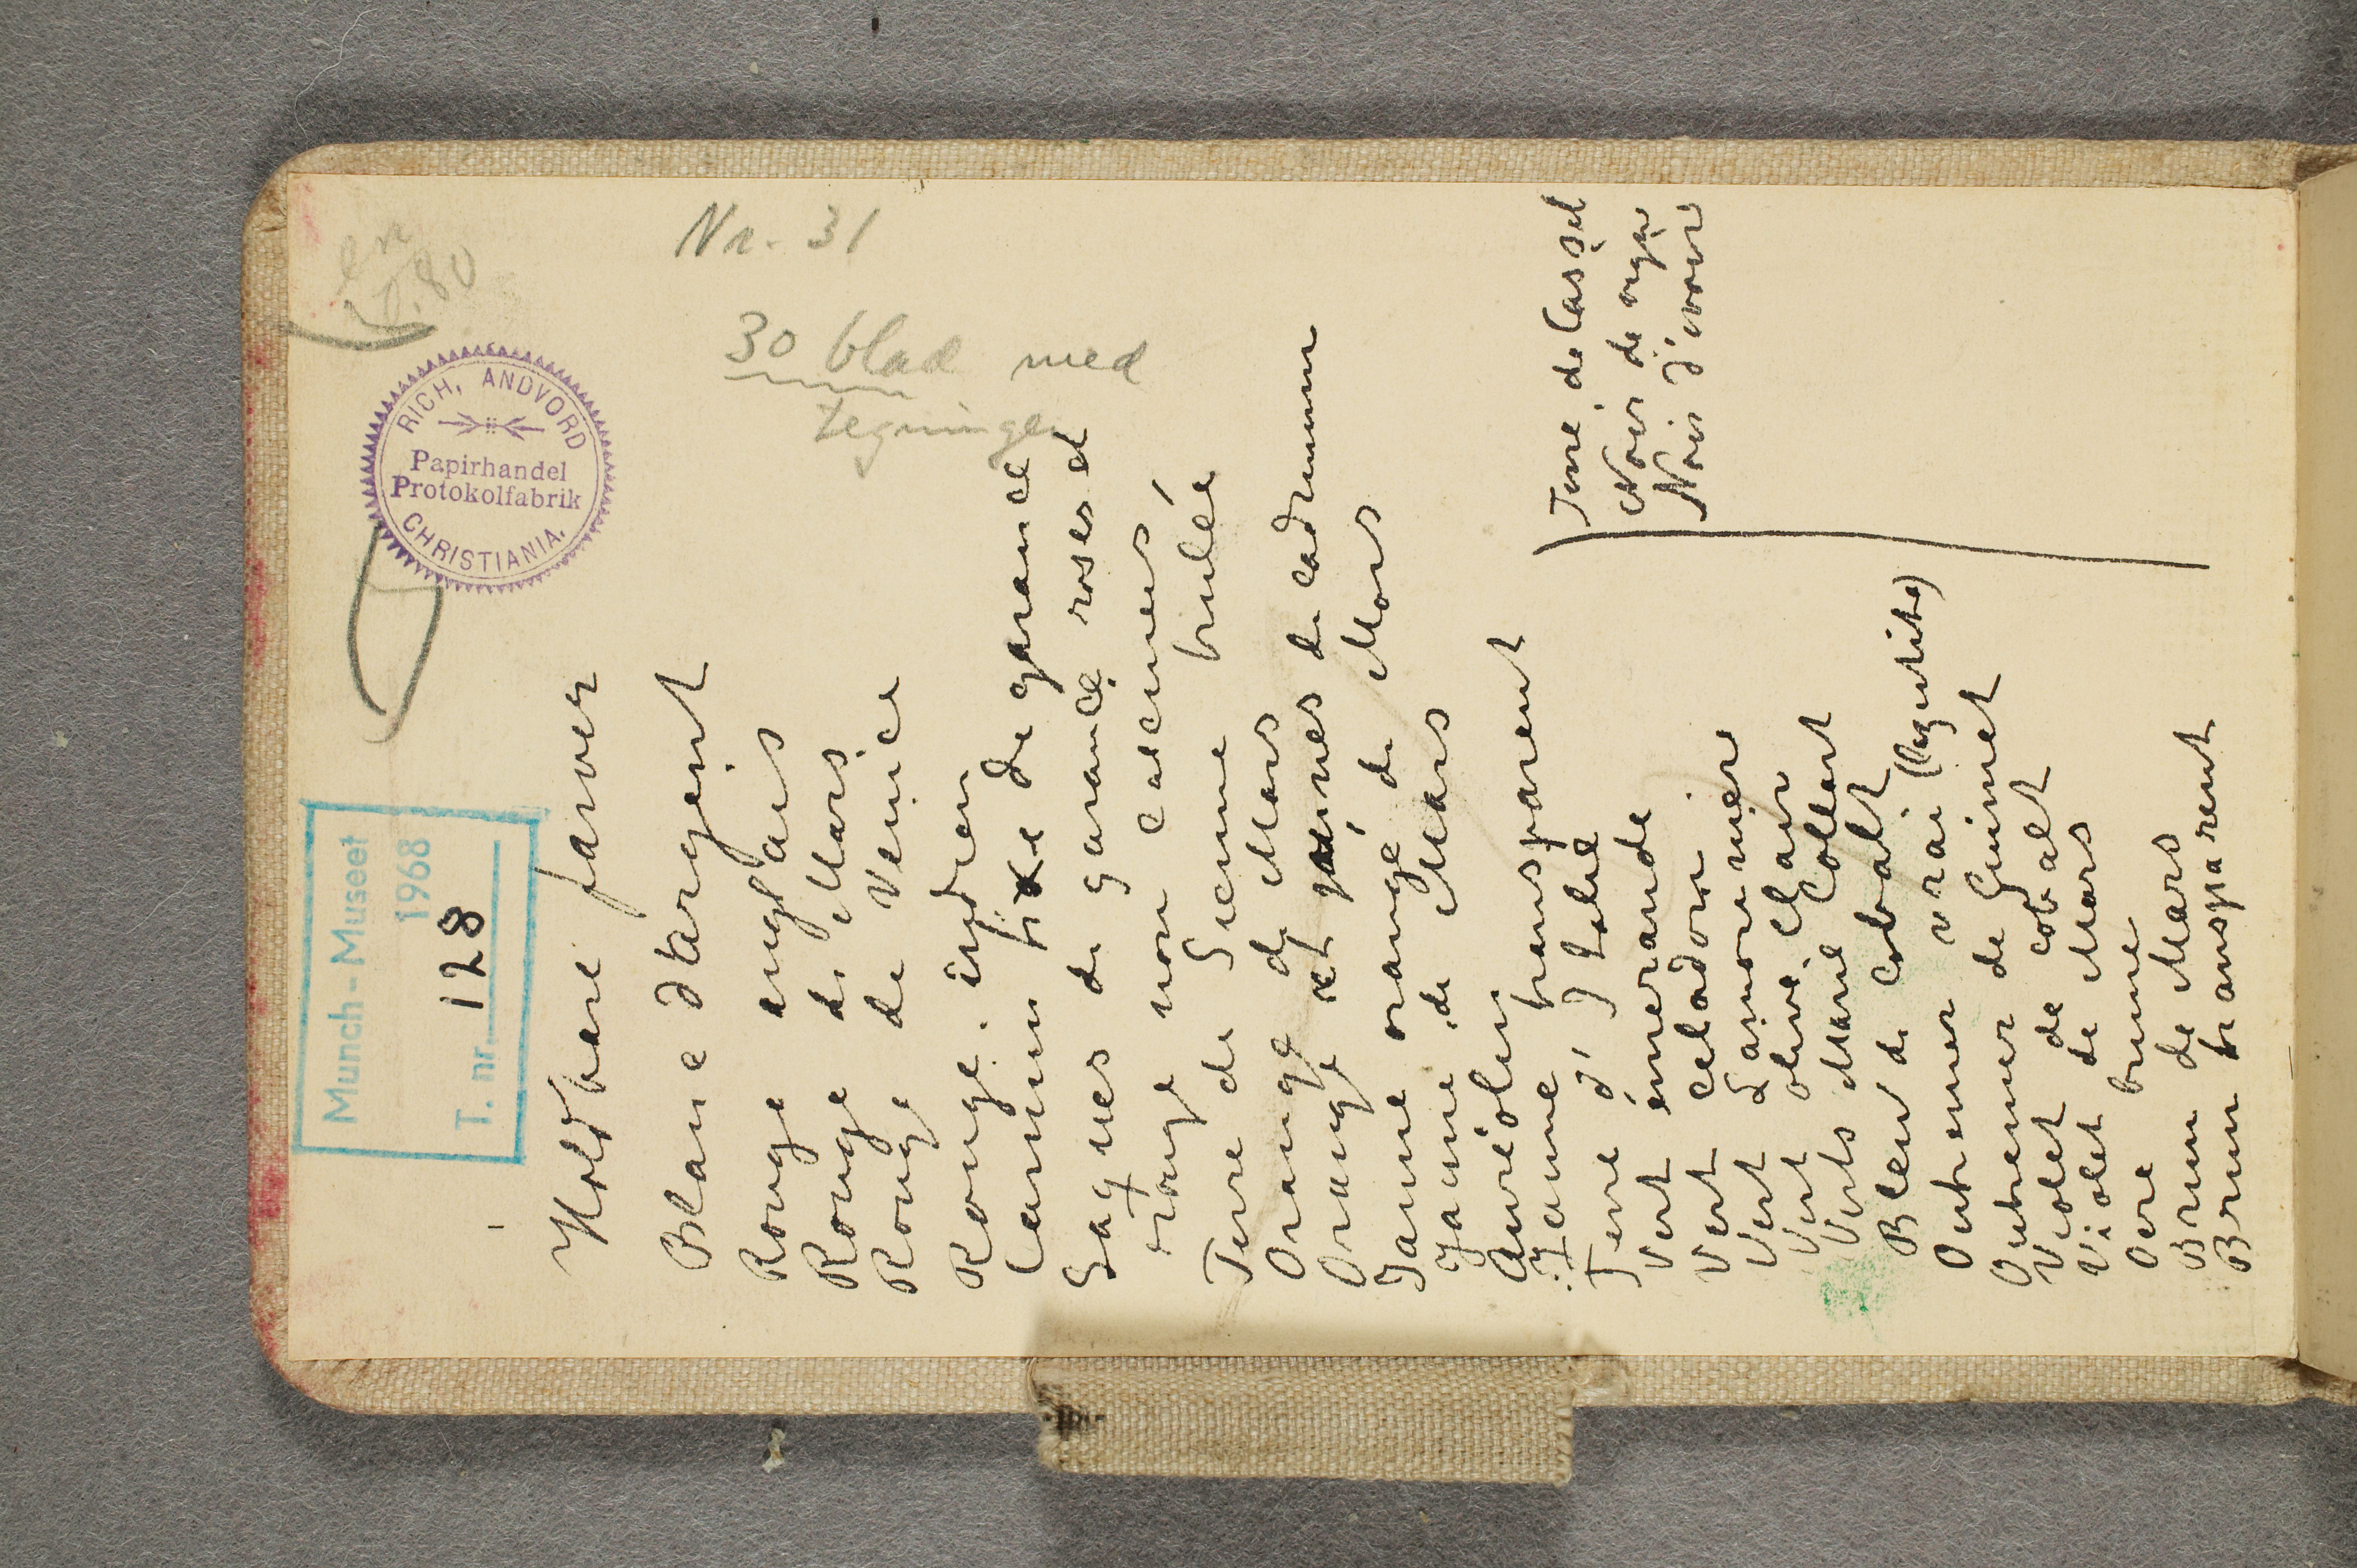 Munch-Museet
1968
T. nr. 128
RICH, ANDVORD
Papirhandel
Protokolfabrik
CHRISTIANIA.
Nr. 31
30 blad med
tegninger
Holdbare farver
Blanc d'argent
Rouge anglais
Rouge de Mars
Rouge de Venice
Rouge indien
Carmin fixe de garance
Laques de garance roses et
rouge non calcinées
Terre de Sienne brulée
Orange de Mars
Orange et jaunes de cadmium
Jaune orange de Mars
Jaune de Mars
Auréolin
Jaune transparent
Terre d'Italie
Vert émeraude
Vert celadon
Vert Lamoriniere
Vert olive Clair
Verts Marie Collart
Bleu de Cobalt
Outremer vrai (lazulite)
Outremer de Guimet
Violet de cobalt
Violet de Mars
Ocre brune
Brun de Mars
Brun transparent
Terre de Cassel
Noir de vigne
Noir d'ivoire